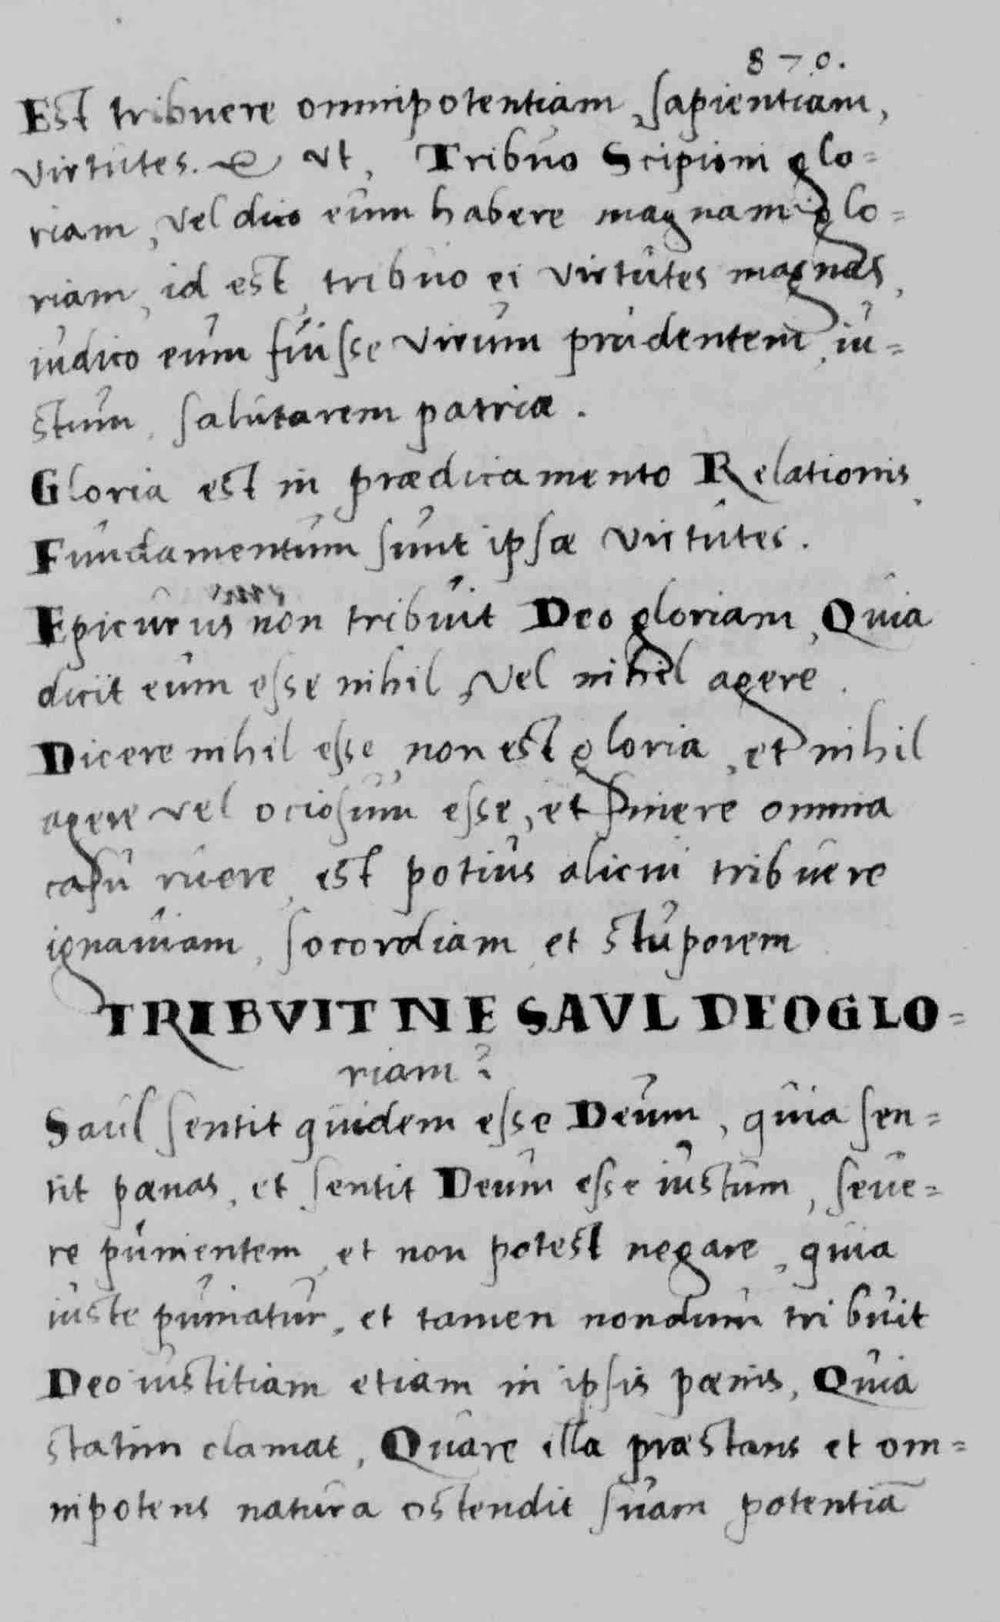 870.
Est tribuere omnipotentiam, sapientiam,
virtutes. &c ut, Tribuo Scipioni glo=
riam, vel dico eum habere magnam glo=
riam, id est, tribuo ei virtutes magnas,
iudico eum fuisse virum prudentem, iu=
stum, salutarem patriæ.
Gloria est in prædicamento Relationis,
Fundamentum sunt ipsæ virtutes.
Epicurus non tribuit Deo gloriam, Quia
dicit eum esse nihil, Vel nihil agere.
Dicere nihil esse, non est gloria, et nihil
agere vel ociosum esse, et sinere omnia
casu ruere, est potius alicui tribuere
ignauiam, socordiam et stuporem
TRIBVIT NE SAVL DEO GLO=
riam?
Saul sentit quidem esse Deum, quia sen=
tit pœnas, et sentit Deum esse iustum, seue=
re punientem, et non potest negare, quia
iuste puniatur, et tamen nondum tribuit
Deo iustitiam etiam in ipsis pœnis, Quia
statim clamat, Quare illa præstans et om=
nipotens natura ostendit suam potentiā